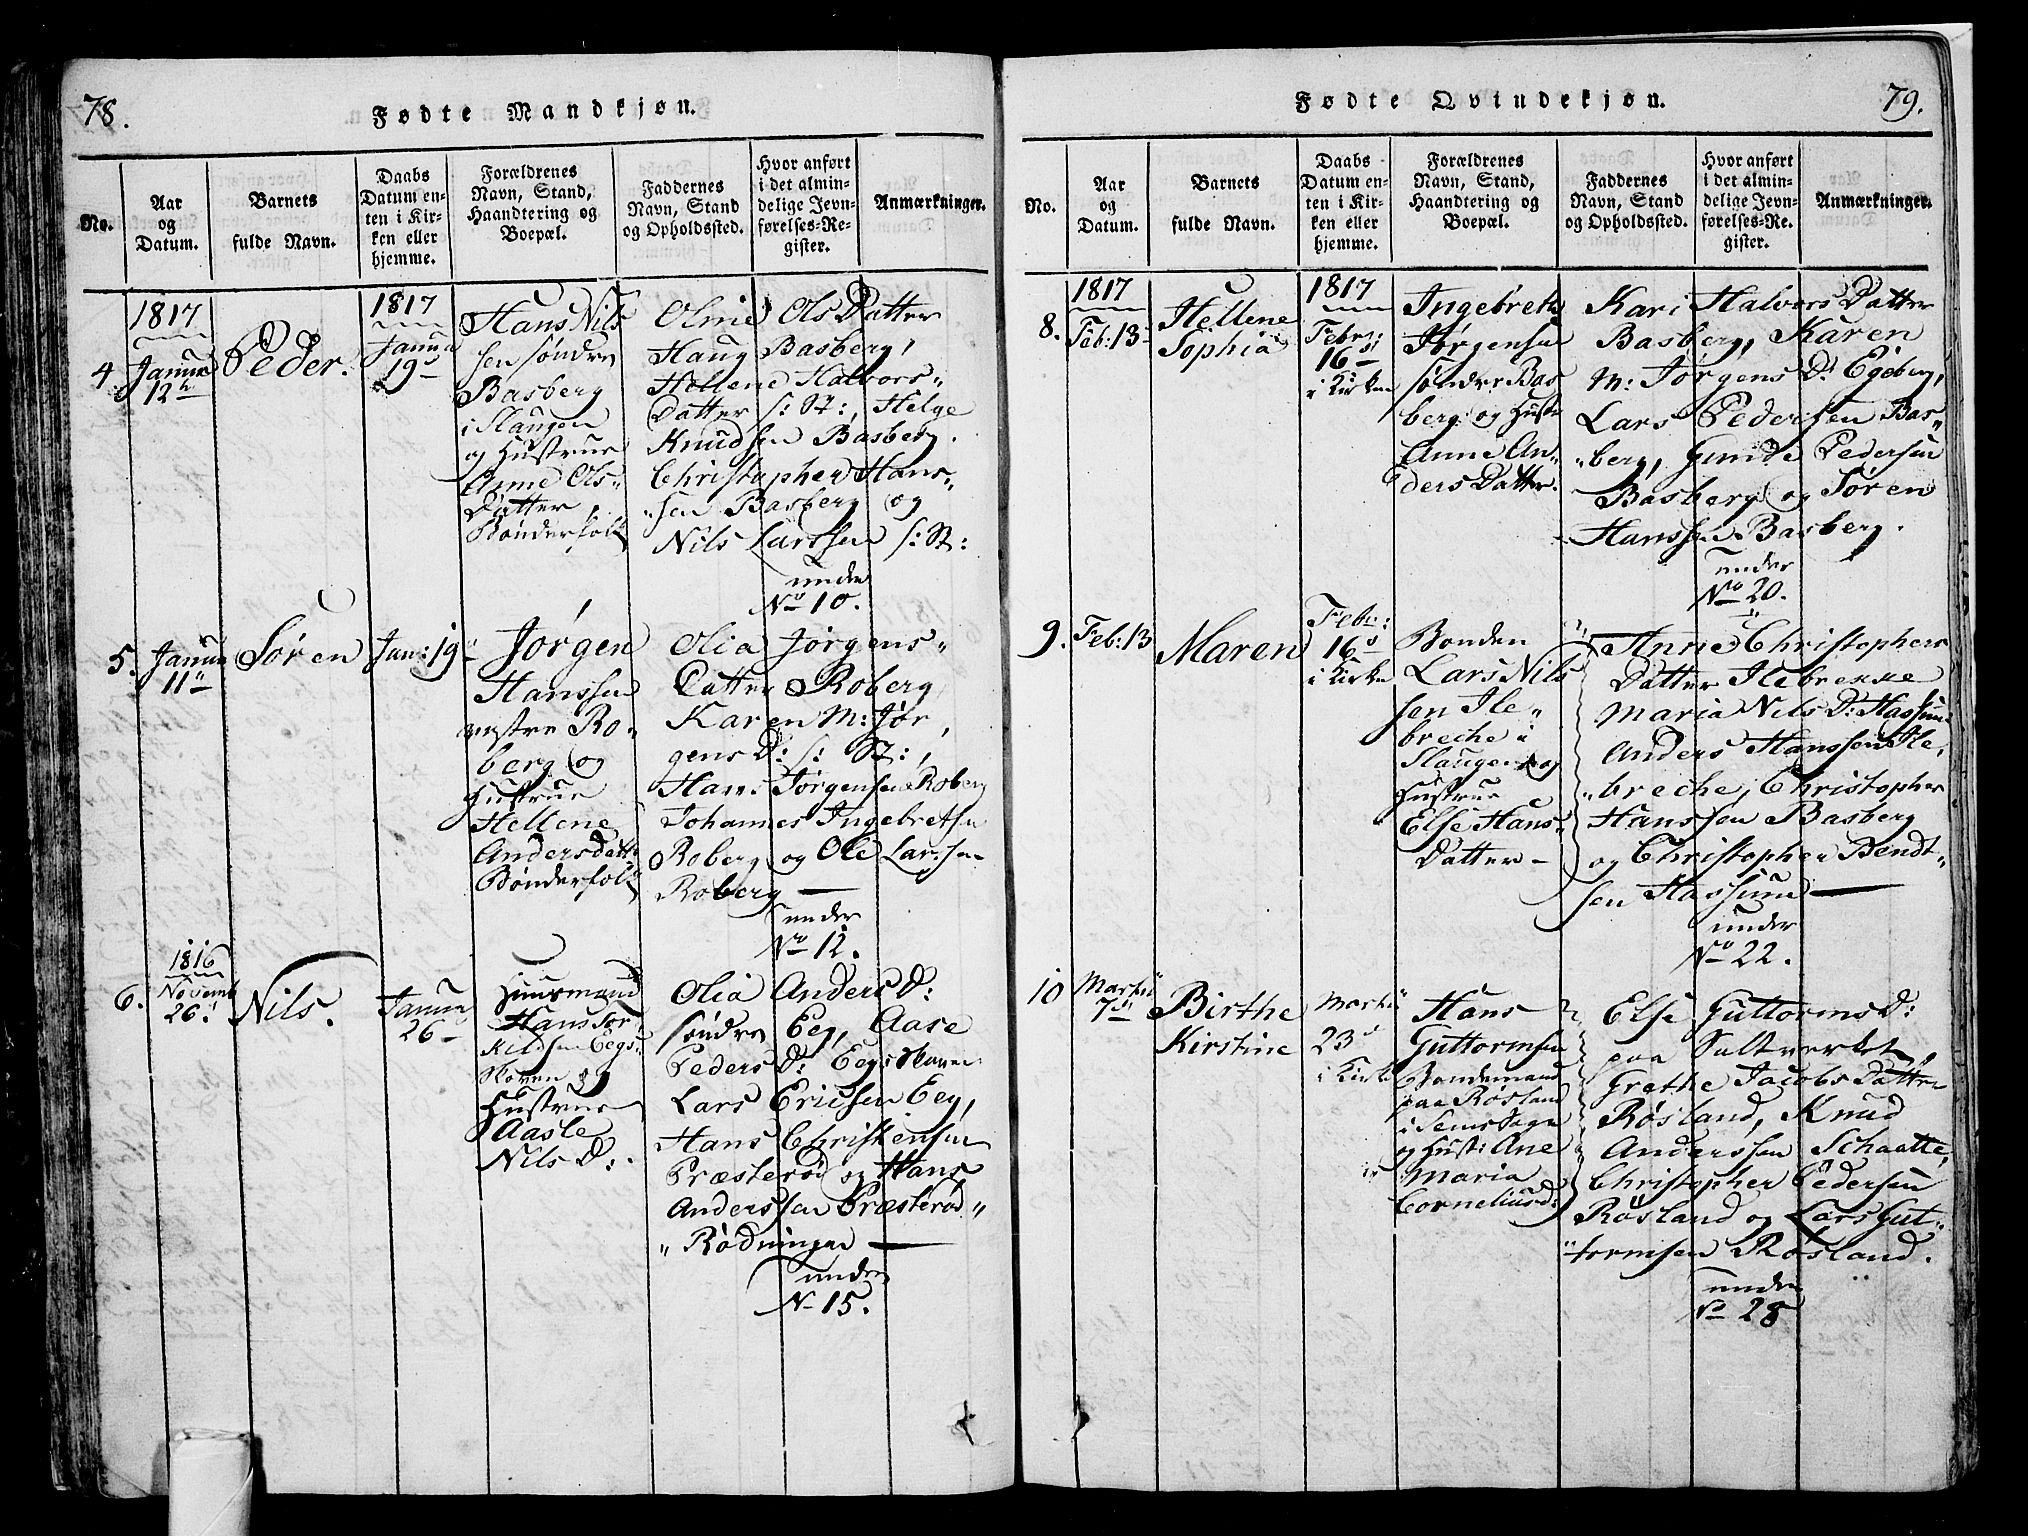 78.
Fødte Mandkjøn.
No.
Aar
og
Datum.
Barnets
fulde Navn.
Daabs
Datum en-
ten i Kir-
ken eller
hjemme.
Forældrenes
Navn, Stand,
Haandtering og
Boepæl.
Faddernes
Navn, Stand
og Opholdssted.
Hvor anført
i det almin-
delige Jevn-
førelses-Re-
gister.
Anmærkninger.
4
1817
Janua
12
Peder.
1817
Janua
19
Hans Nils
sen søndre
Basberg
i Slaugen
og Hustrue
Anne Ols
Datter,
Bønderfolk
Olnie Ols Datter
Haug Basberg,
Hellene Halvors
Datter s: St:, Helge
Knudsen Basberg.
Christopher Hans
sen Basberg og
Nils Larssen s: St:
under
No 10.
5.
Janua
11
Søren
Jan: 19
Jørgen
Hanssen
vestre Ro
berg og
Hustrue
Hellene
Andersdatt:
Bønderfolk
Olia Jørgens
Datter Roberg
Karen M: Jør
gens D: s: St:,
Hans Jørgensen Roberg
Johannes Ingebretsen
Roberg og Ole Larssen
Roberg
under
No 12.
6.
1816
Novemb
26
Nils.
Janua
26
Huusmand
Hans Tor
kildsen Eegs
skoven og
Hustrue
Aasle
Nils D:
Olia Anders D:
søndre Eeg, Aase
Peders D: Eegskoven
Lars Ericsen Eeg,
Hans Christensen
Præsterød og Hans
Anderssen Præsterød
Rødningen
under
No 15.
79.
Fødte Qvindekjøn.
No.
Aar
og
Datum.
Barnets
fulde Navn.
Daabs
Datum en-
ten i Kir-
ken eller
hjemme.
Forældrenes
Navn, Stand,
Haandtering og
Boepæl.
Faddernes
Navn, Stand
og Opholdssted.
Hvor anført
i det almin-
delige Jevn-
førelses-Re-
gister.
Anmærkninger.
8.
1817
Feb: 13
Hellene
Sophia
1817
Febr:
16
i Kirken
Ingebreth
Jørgensen
søndre Bas
berg og Hustr
Anne An
ders Datter.
Kari Halvors Datter
Basberg, Karen
M: Jørgens D: Egeberg,
Lars Pedersen Bas
berg, Gunde Pedersen
Basberg og Søren
Hanssen Basberg.
under
No 20.
9.
Feb: 13
Maren
Febr:
16
i Kirken
Bonden
Lars Nils
sen Ile
breche i
Slaugen og
Hustrue
Else Hans
Datter
Anne Christophers
Datter Ilebrekke
Maria Nils D: Hassum
Anders Hanssen Ile
breche, Christopher
Hanssen Basberg
og Christopher Bendt
sen Hassum
under
No 22.
10
Martii
7
Birthe
Kirstine
Martii
23
i Kirken
Hans
Guttormsen
Bondemand
paa Røsland
i Sems Sogn
og Hust: Ane
Maria
Corneliusd:
Else Guttorms D:
paa Saltverket,
Grethe Jacobs Datter
Røsland, Knud
Anderssen Schaatte,
Christopher Pedersen
Røsland og Lars Gut
tormsen Røsland.
under
No 28